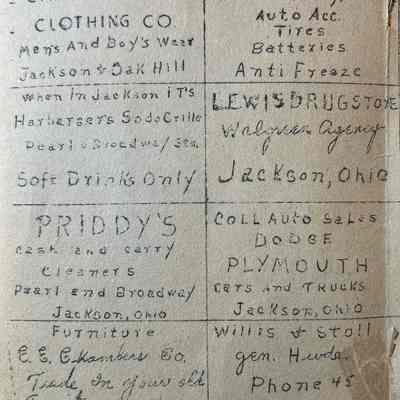 CLOTHING CO.
Men's And Boy's Wear
Jackson & Oak Hill
Auto Acc.
Tires
Batteries
Anti Freeze
When In Jackson iT's
Harbarger's Soda Grille
Pearl & Broadway Sts.
Soft Drinks Only
LEWIS DRUG STORE
Walgreen Agency
Jackson, Ohio
PRIDDY'S
cash and carry
Cleaners
Pearl and Broadway
Jackson, Ohio
Coll Auto Sales
DODGE
PLYMOUTH
Cars and Trucks
Jackson, Ohio
Furniture
E. E. Chambers Co.
Trade In your old
Willis & Stoll
gen. Hwde.
Phone 45